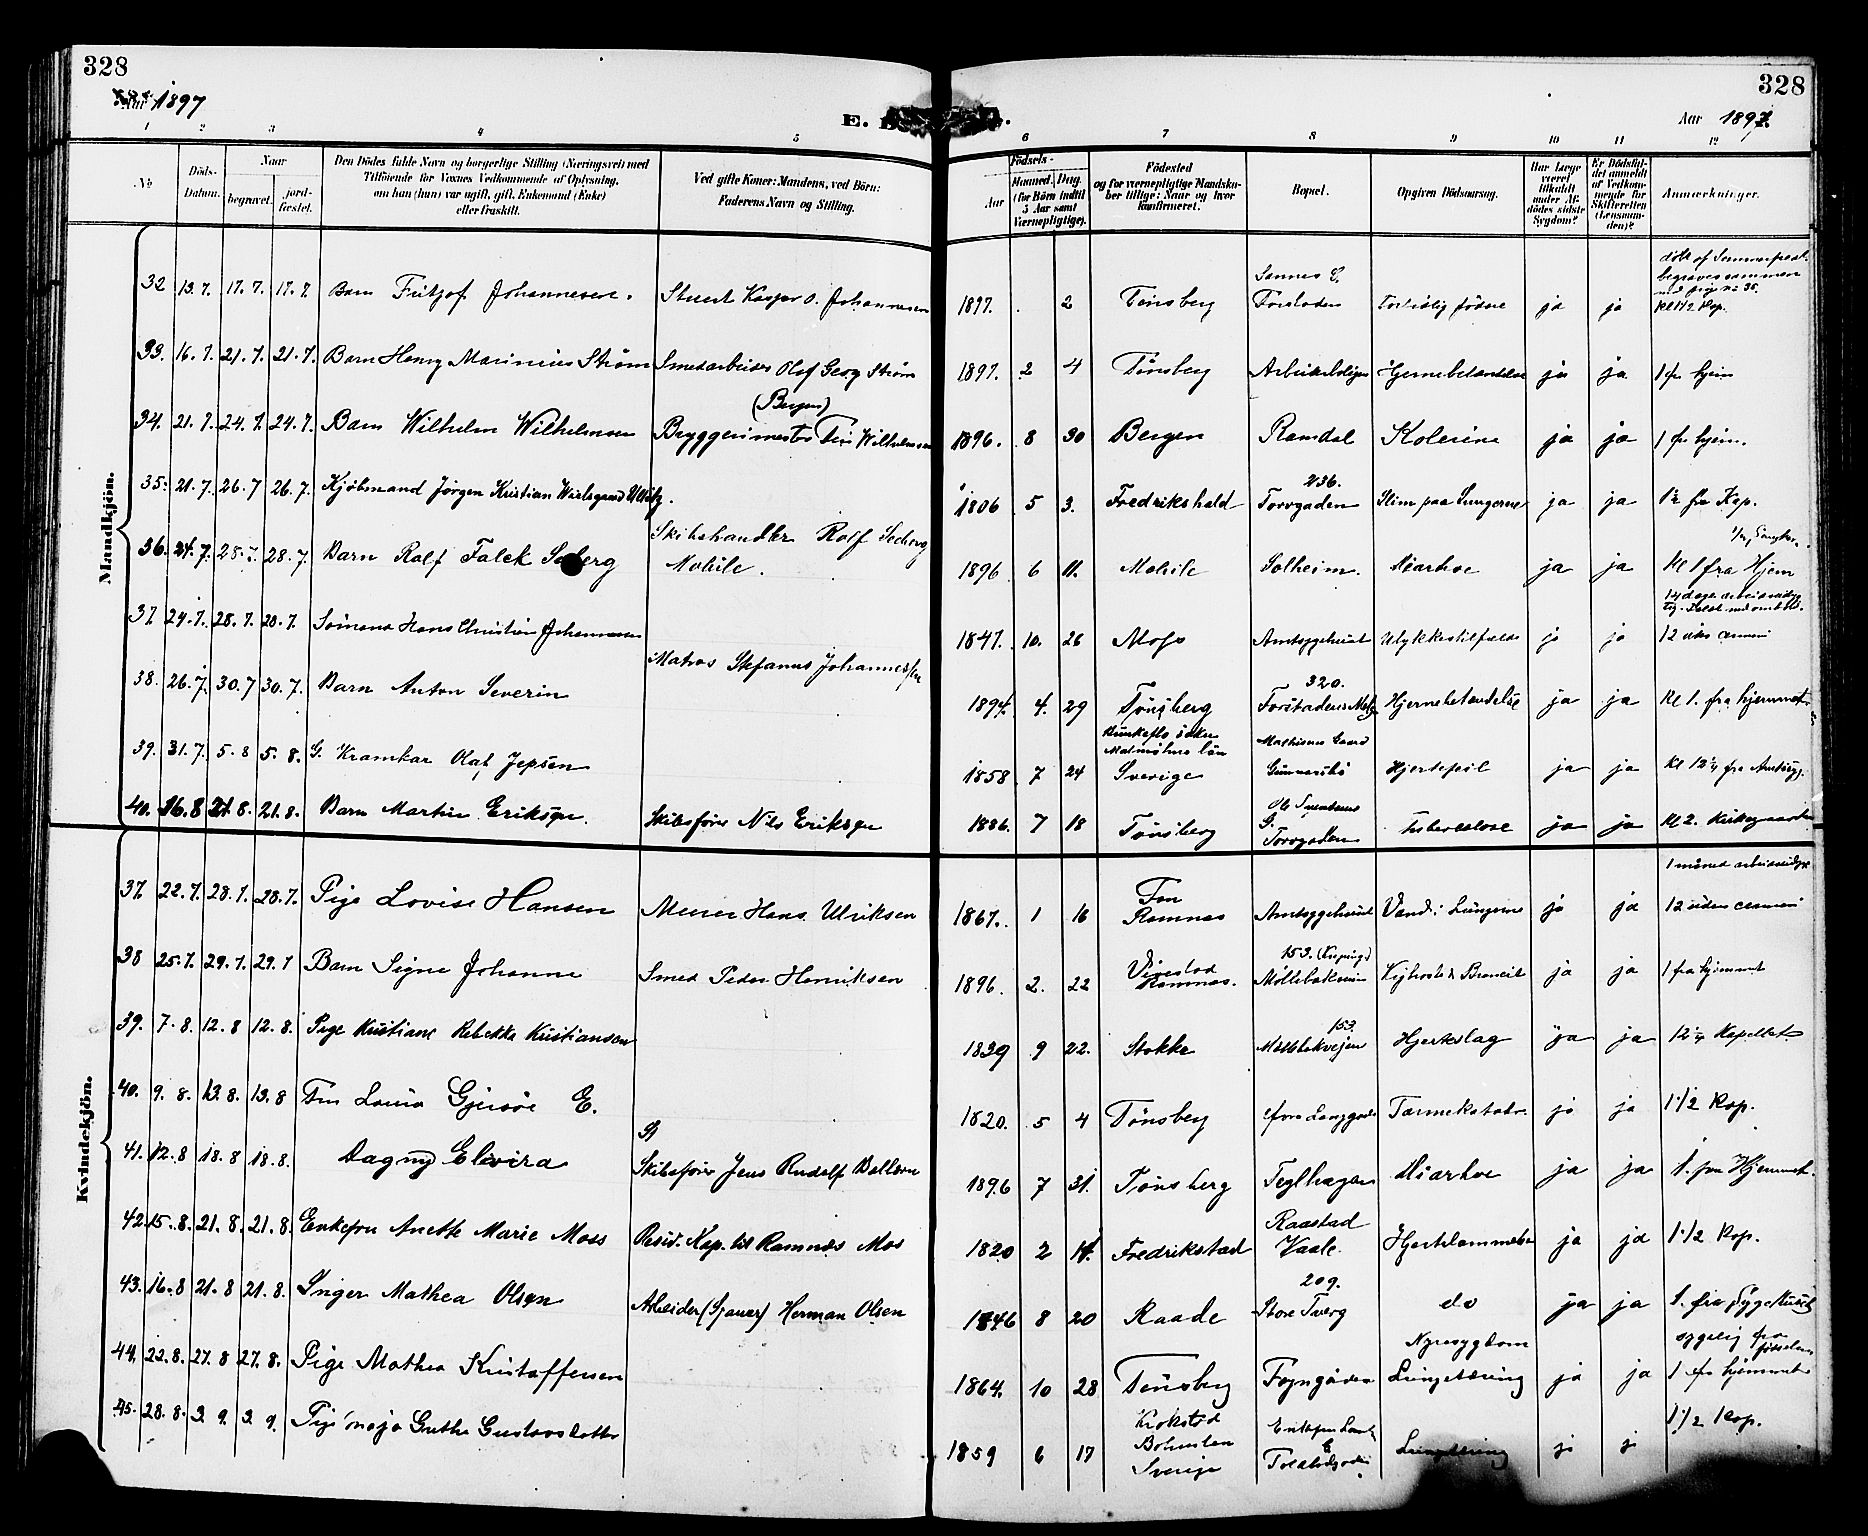 328
1897
328
Aar 1897.
E. D
1 2 3 4 5 6 7 8 9 10 11 12
No
Döds-Datum.
Naar
begravet.
jord-fæstet.
Den Dödes fulde Navn og borgerlige Stilling (Næringsvei) med
Tilföiende för Voxnes Vedkommende af Oplysning,
om han (hun) var ugift, gift, Enkemand (Enke)
eller fraskilt.
Ved gifte Koner: Mandens, ved Börn:
Faderens Navn og Stilling.
Födsels-
Aar
Maaned.
Dag
(for Börn indtil 5 Aar samt Værnepligtige).
Födested
og for værnepligtige Mandska-
ber tillige: Naar og hvor
konfirmeret.
Bopæl.
Opgiven Dödsaarsag.
Har Læge været tilkaldt under Af-dödes sidste Sygdom?
Er Dödsfal-det anmeldt af Vedkom-mende for Skifteretten (Lensman-den)?
Anmærkninger.
Mandkjön.
32 13.7. 17.7. 17.7. Barn Fritjof Johannesen. Stuert Kasper O. Johannesen 1897. 2 Tönsberg Forstaden For tidlig födsel ja ja Kl 1 1/2 Kap.
33. 16.7. 21.7. 21.7. Barn Henry Marinius Strøm Smedarbeider Olaf Georg Strøm 1897. 2 4 Tönsberg Arbeiderboliger Hjernebetændelse ja ja 1 fr hjem
(Bergen)
34. 21.7. 24.7. 24.7. Barn Wilhelm Wilhelmsen Bryggerimester Wilhelmsen 1896. 8 30 Bergen Ramdal Kolerine ja ja 1 fr hjem.
236.
35. 21.7. 26.7 26.7. Kjöbmand Jørgen Kristian 1806 5 3. Fredrikshald Torvgaden Slim paa Lungerne ja ja 12 fra Kap.
36. 24.7. 28.7. 28.7. Barn Rolf Falck Seeberg Skibshandler Rolf Seeberg
Mobile. 1896 6 11. Mobile Solheim. Diarhoe ja ja Kl 1 fra Hjem
37 24.7. 28.7. 28.7. Sömand Hans Christian Johannesen 1847. 10. 26 Moss Amtssygehuset Ulykkestilfælde ja ja 12
38. 26.7. 30.7 30.7. Barn Anton Severin Matros Stefanus Johannessen 1894. 4. 29 Tönsberg 320. Hjernebetændelse ja ja Kl 1. fra hjemmet
39. 31.7. 5.8 5.8. G. Kramkar Olaf Jepsen 1858 7 24 Sverige Hjertefeil ja ja Kl 12 1/4 fra Amtssyg.
40. 16.8 21.8. 21.8. Barn Martin Eriksen. Skibsfører Nils Eriksen 1886. 7 18 Tönsberg Torvgaden Tuberculose ja ja Kl 2. Kirkegaarden
Kvindekjön.
37. 22.7. 28.7. 28.7. Pige Lovise Hansen Murer Hans Ulriksen 1867. 1 16 Fon
Ramnæs Amtssygehuset Vand i Lungerne ja ja 12 uden ceremoni
38 25.7. 29.7. 29.7 Barn Signe Johanne Smed Peder Henriksen 1896. 2. 22 Vivestad
Ramnæs. 153. Kighoste & Bronchit ja ja 1 fra hjemmet
39. 7.8. 12.8 12.8. Pige Kristiane Rebekka Kristiansen 1839 9 22. Stokke 153. Møllebakvejen Hjerteslag ja ja 12 1/4 Kapellet
40. 9.8. 13.8. 13.8 Fru Lovise Gjersöe E. 1820. 5 4 Tönsberg Tarmekatarr ja ja 1 1/2 Kap.
41. 12.8 18.8 18.8. Dagny Elevira Skibsfører Jens Rudolf Ballson 1896 7 31. Tönsberg Teglhagen Diarhoe ja ja 1. fra Hjemmet.
42. 15.8. 21.8. 21.8. Enkefru Anette Marie Moss Resid. Kap. til Ramnæs Mos 1820 2 14. Fredrikstad Raastad
Vaale. Hjertelammelse ja ja 1 1/2 Kap.
43. 16.8 21.8 21.8. Inger Mathea Olsen Arbeider (Sjauer) Herman Olsen 1846 8 20 Raade 209.
Store Tverg do ja ja 1. fra Sygehuset
Nyresygdom
44. 22.8. 27.8 27.8. Pige Mathea Kristoffersen 1864. 10 28 Tönsberg Fayngaden Lungetæring ja ja 1 fr hjemmet
45. 28.8. 3.9. 3.9. Pige Maja Grethe Gustavsdatter 1859 6 17 Krokstad
Bohuslen
Sverige Lungetæring ja ja 1 1/2 Kap.